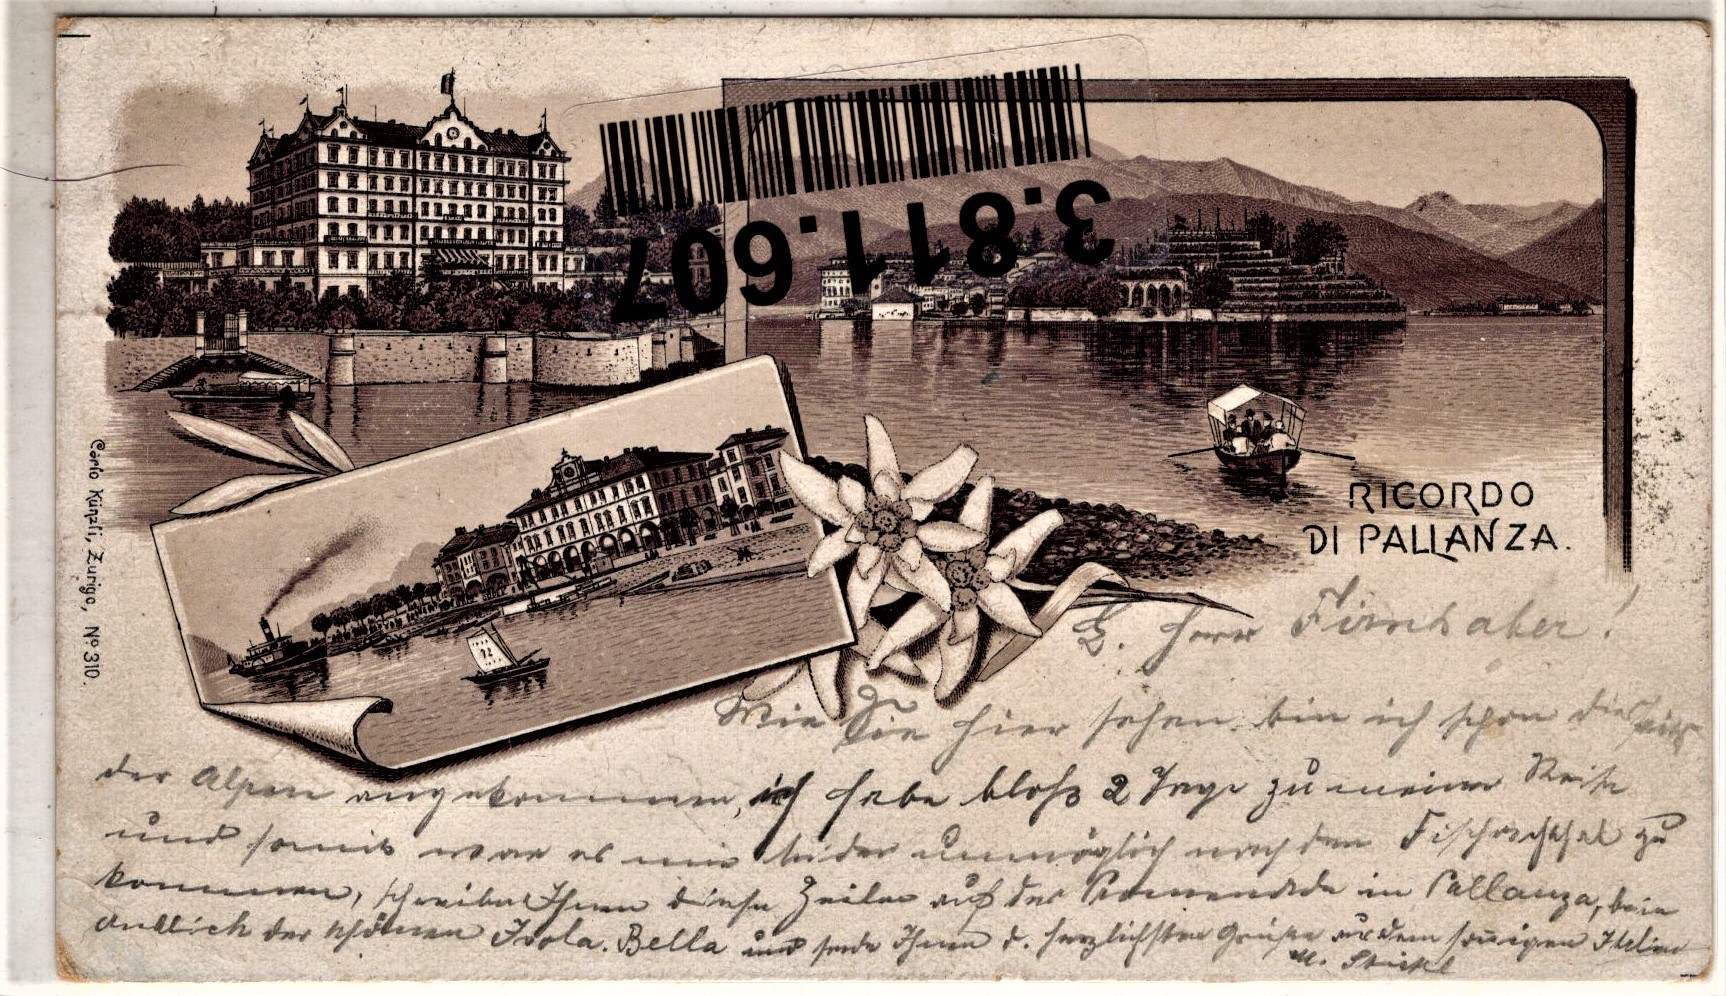 3.811.607
12
RICORDO
DI PALLANZA.
Carlo Künzli, Zurigo, Nº 310.
Herr Firnhaber!
Wie Sie hier sehen bin ich schon
der Alpen angekommen, ich habe bloß 2 Tage zu meiner Reise
und somit war es mir leider unmöglich nach dem Fischachthal zu
kommen, schreibe Ihnen diese Zeilen auf der Promenade in Pallanza, beim
Anblick der schönen Isola. Bella und sende Ihnen d. herzlichsten Grüße aus dem sonnigen Italien
M.